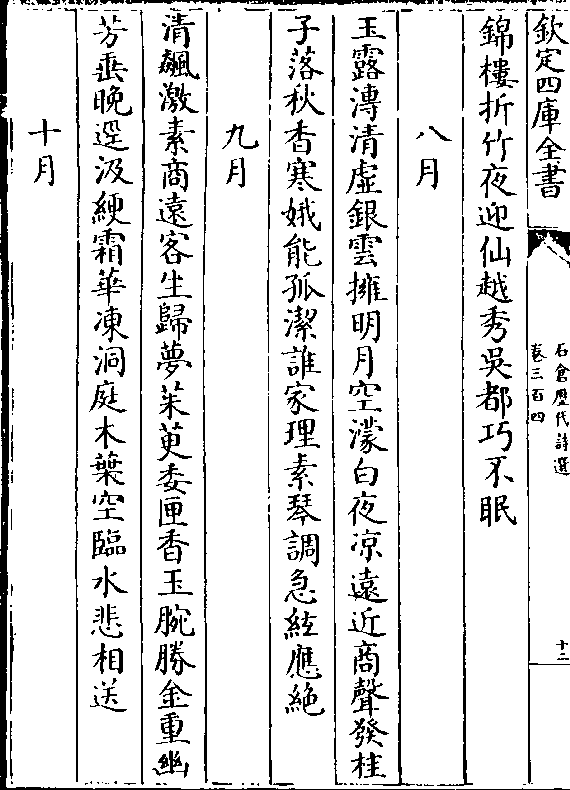 欽定四庫全書
石倉歷代詩選
卷三百四
十二
錦樓折竹夜迎仙越秀吳都巧不眠
八月
玉露漙清虛銀雲擁明月空濛白夜凉遠近商聲發桂
子落秋香寒娥能孤潔誰家理素琴調急絃應絶
九月
清飇激素商遠客生歸夢茱萸委匣香玉腕勝金重幽
芳垂晚逕汲綆霜華凍洞庭木葉空臨水悲相送
十月